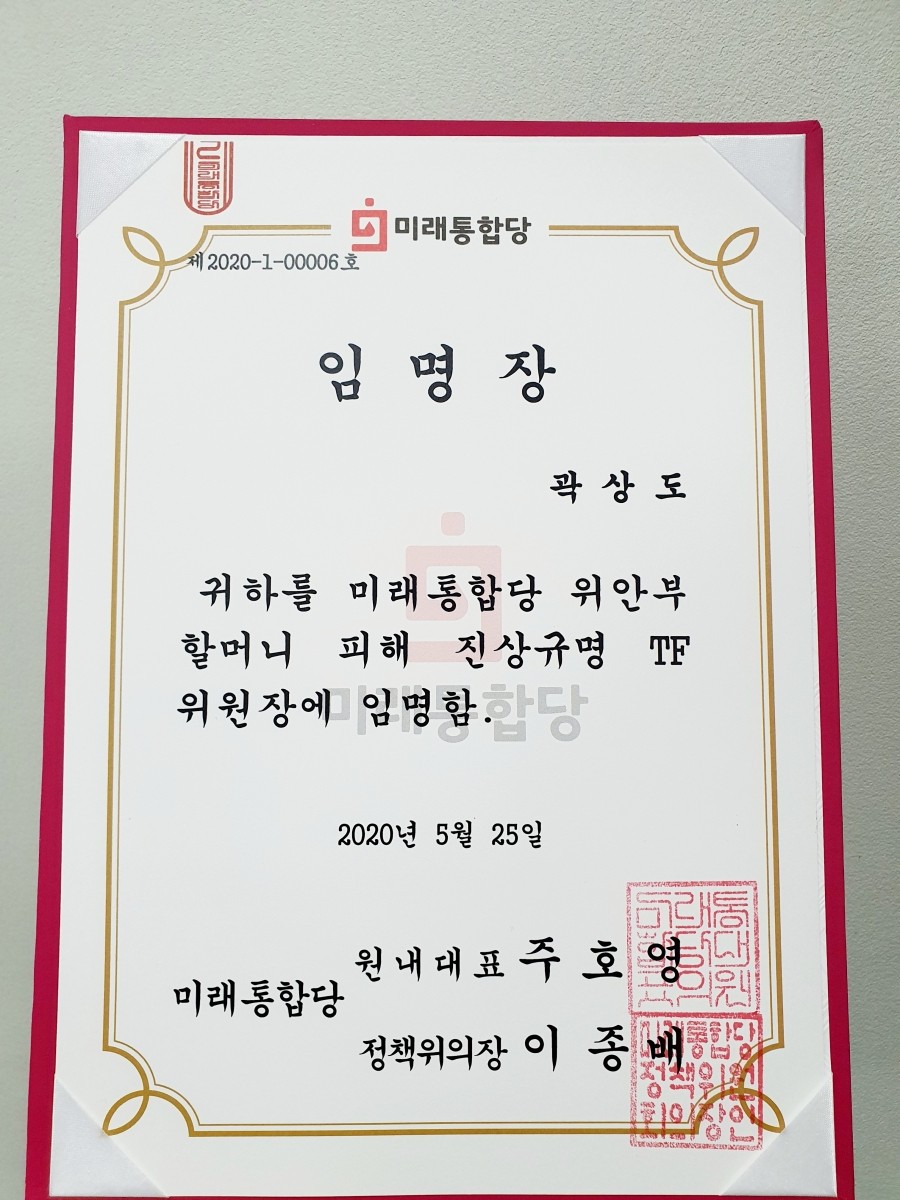 미래통합당
제2020-1-00006호
임명장
곽상도
귀하를 미래통합당 위안부
할머니 피해 진상규명 TF
위원장에 임명함.
미래통합당
2020년 5월 25일
원내대표 주호영
미래통합당
정책위의장 이종배
미래통합당
정책위원
회의장인